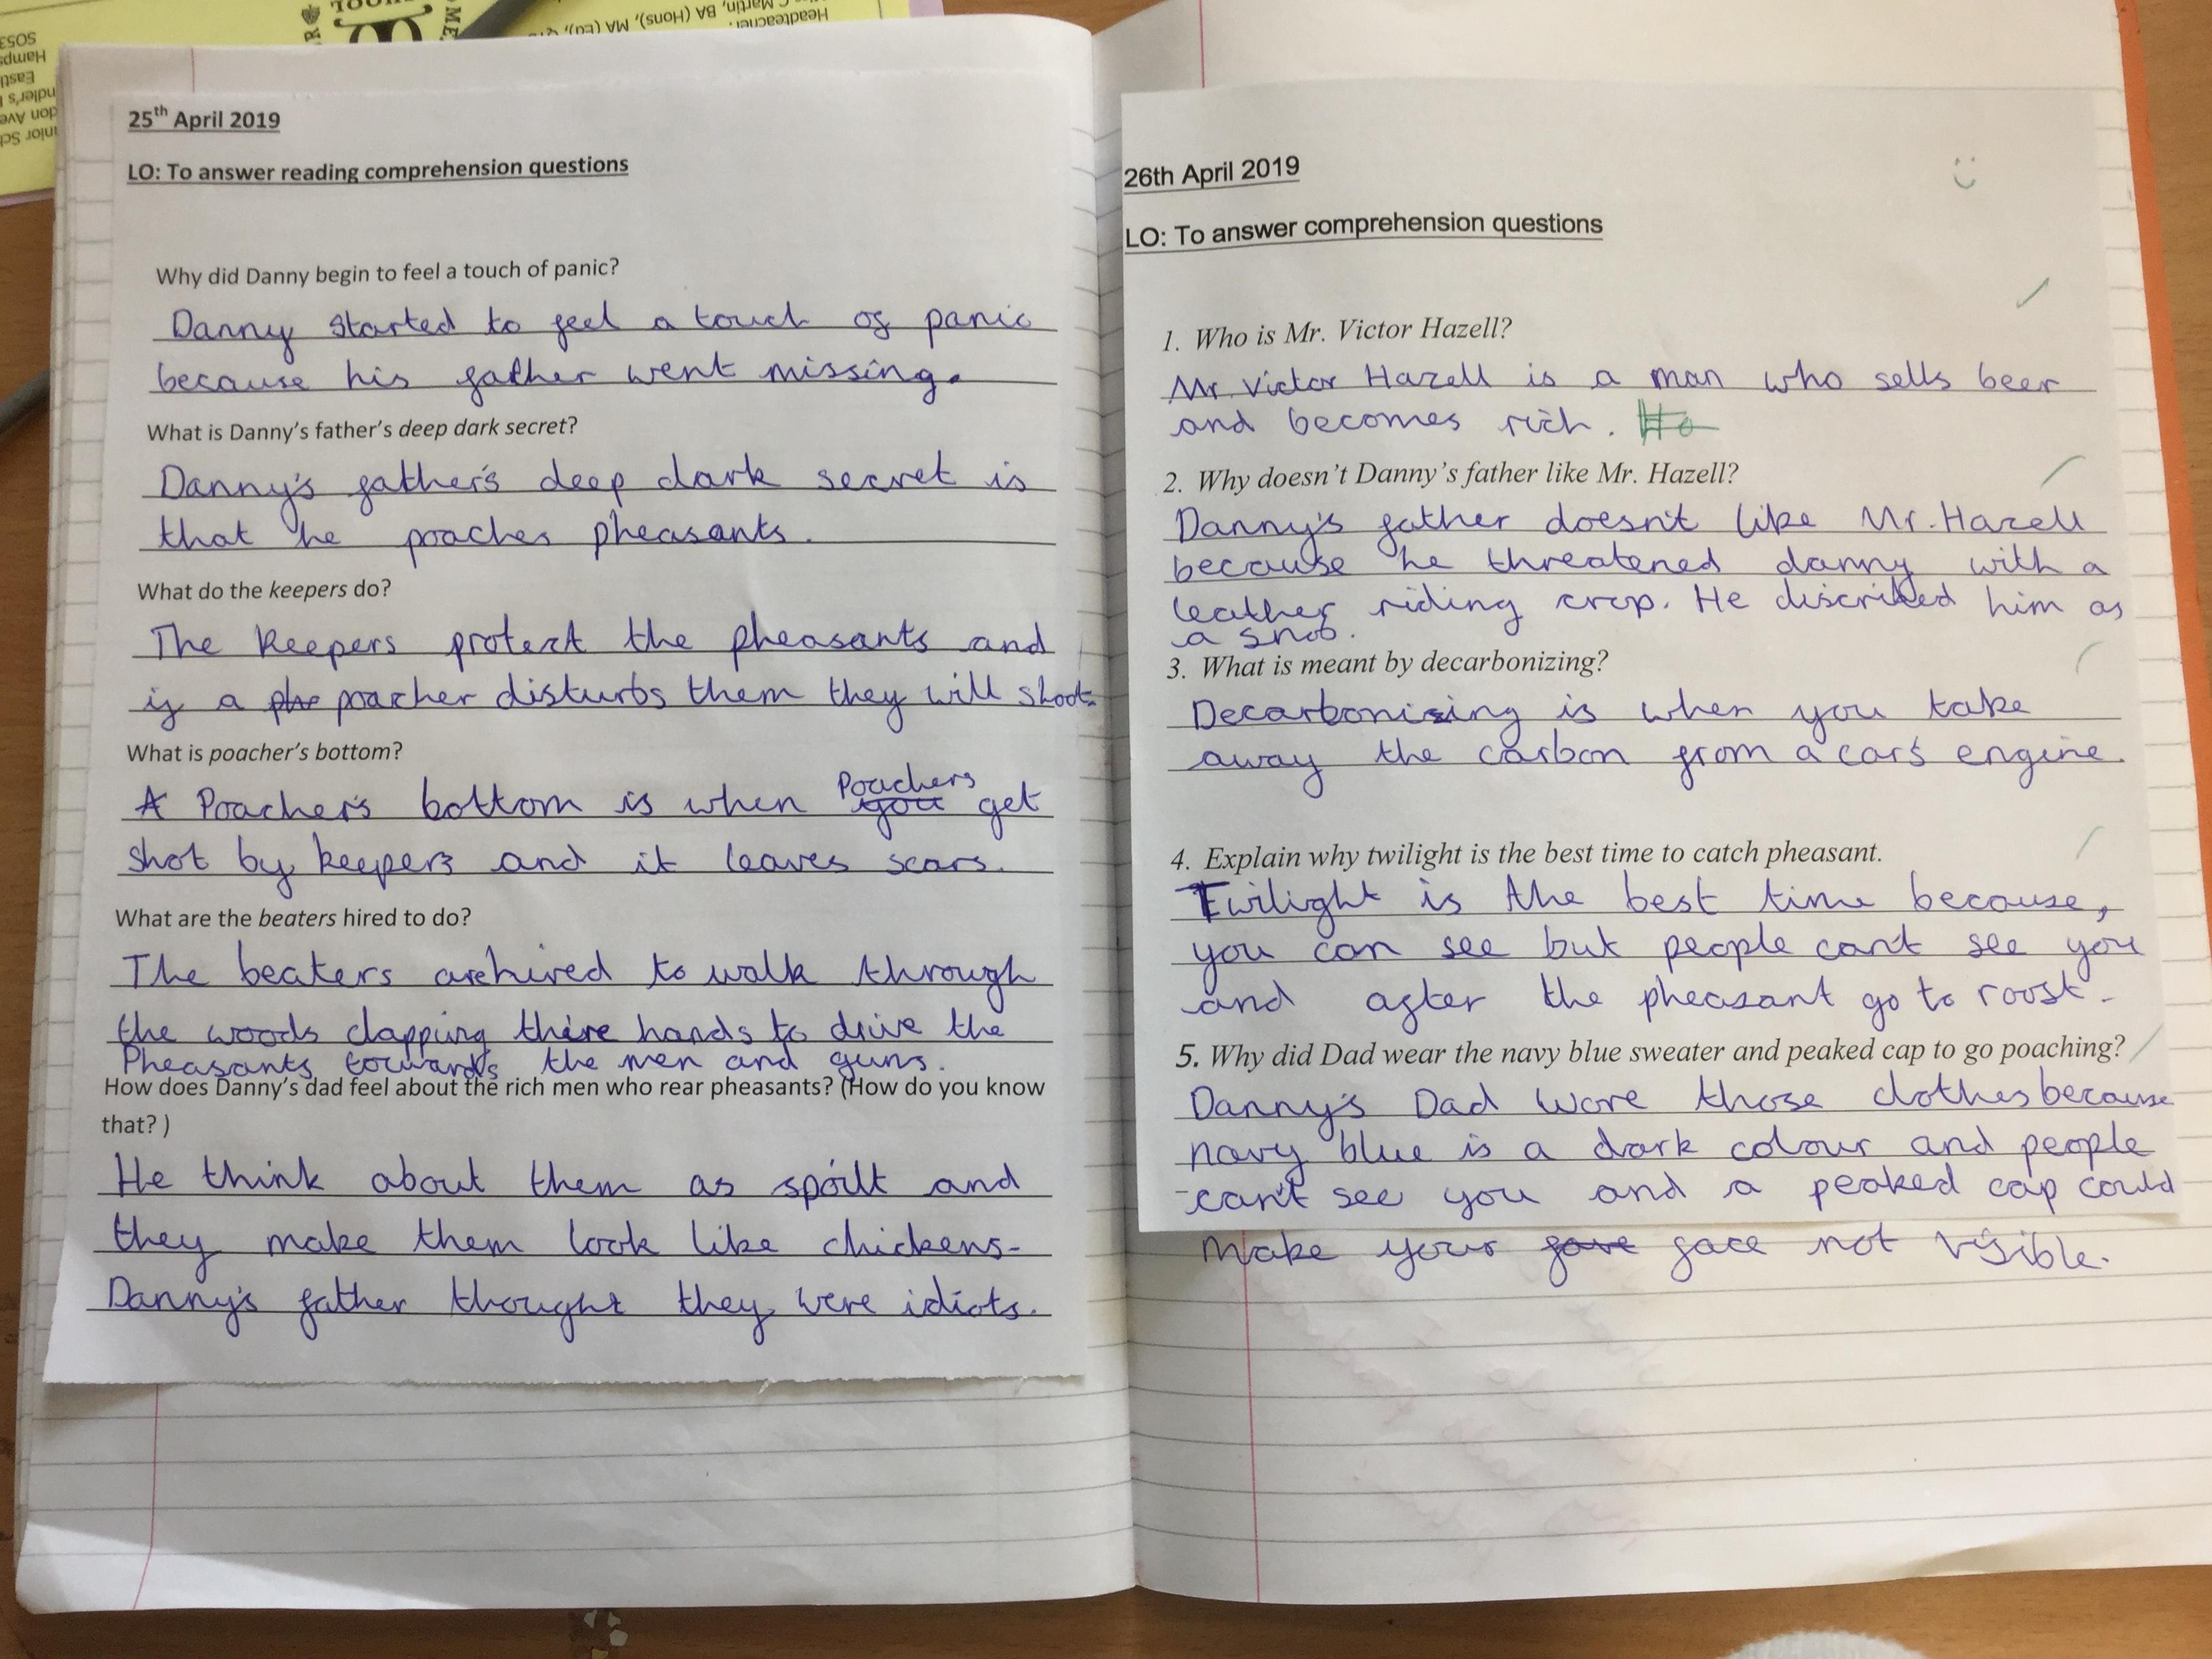 25th April 2019
LO: To answer reading comprehension questions
Why did Danny begin to feel a touch of panic?
Danny started to feel a touch of panic
because his father went missing.
What is Danny's father's deep dark secret?
Danny's father's deep dark secret is
that he poaches pheasants.
What do the keepers do?
The keepers protect the pheasants and
if a phe poacher disturbs them they will shoot.
What is poacher's bottom?
A Poacher's bottom is when you Poachers get
shot by keepers and it leaves scars.
What are the beaters hired to do?
The beaters are hired to walk through
the woods clapping there hands to drive the
Pheasants towards the men and guns.
How does Danny's dad feel about the rich men who rear pheasants? (How do you know
that? )
He think about them as spoilt and
they make them look like chickens.
Danny's father thought they were idiots.
26th April 2019
LO: To answer comprehension questions
1. Who is Mr. Victor Hazell?
Mr. Victor Hazell is a man who sells beer
and becomes rich. He
2. Why doesn't Danny's father like Mr. Hazell?
Danny's father doesn't like Mr. Hazell
because he threatened danny with a
leather riding crop. He discribed him as
a snob.
3. What is meant by decarbonizing?
Decarbonizing is when you take
away the carbon from a car's engine.
4. Explain why twilight is the best time to catch pheasant.
Twilight is the best time because,
you can see but people can't see you
and after the pheasant go to roost.
5. Why did Dad wear the navy blue sweater and peaked cap to go poaching?
Danny's Dad wore those clothes because
navy blue is a dark colour and people
can't see you and a peaked cap could
make your fave face not visible.
Headteacher:
Martin, BA (Hons), MA (Ed),
SO53
Hamps
Eastl
ndler's
don Ave
unior Sc